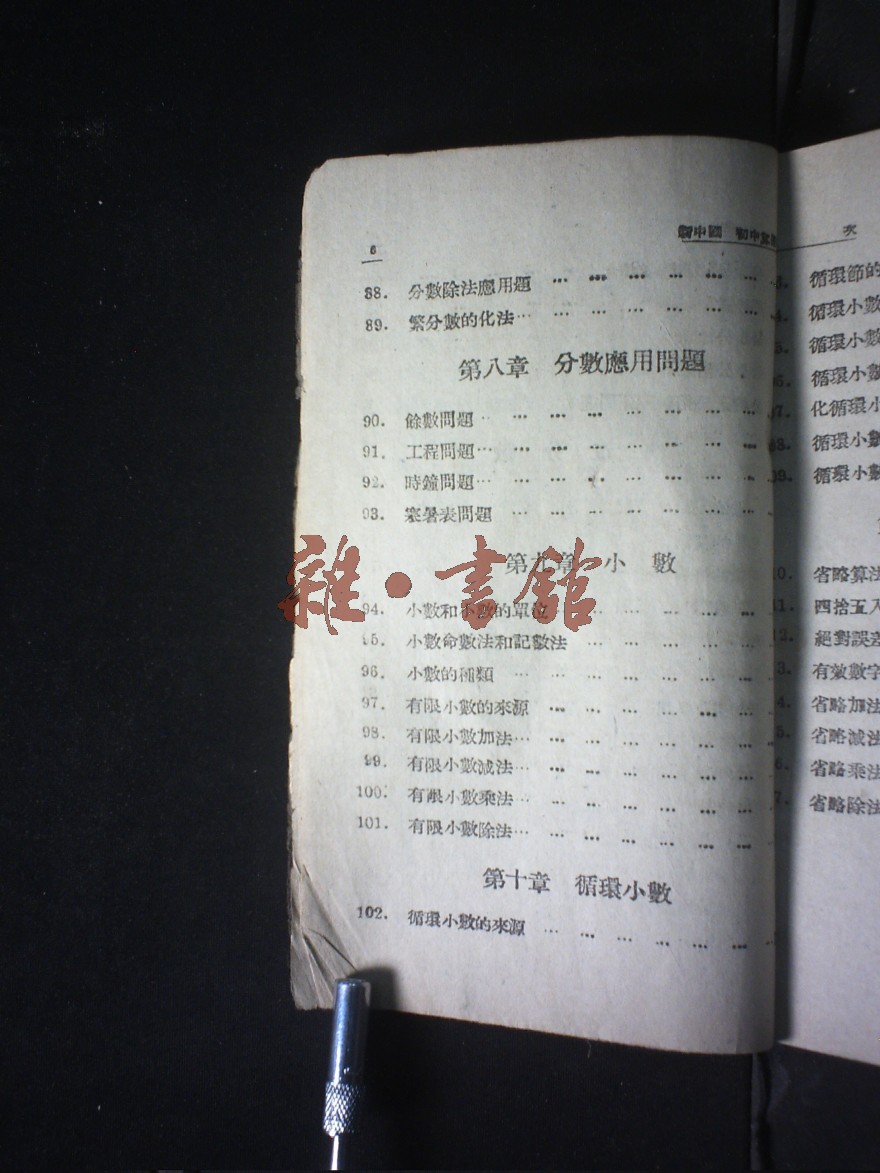 6
88. 分數除法應用題
89. 繁分數的化法
第八章 分數應用問題
90. 餘數問題
91. 工程問題
92. 時鐘問題
93. 寒暑表問題
第九章 小數
94. 小數和小數的單位
95. 小數命數法和記數法
96. 小數的種類
97. 有限小數的來源
98. 有限小數加法
99. 有限小數減法
100. 有限小數乘法
101. 有限小數除法
第十章 循環小數
102. 循環小數的來源
雜·書館
次
循環節的
循環小數
循環小數
循環小數
化循環小
循環小數
循環小數
省略算法
四捨五入
絕對誤差
有效數字
省略加法
省略減法
省略乘法
省略除法